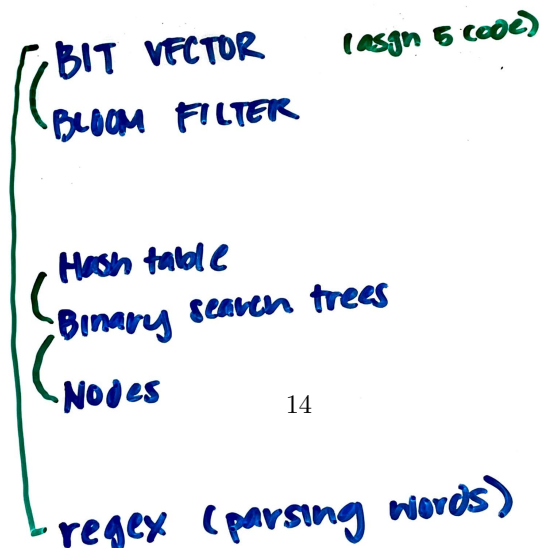 BIT VECTOR (asgn 5 code)
BLOOM FILTER
Hash table
Binary search trees
Nodes
14
regex (parsing words)